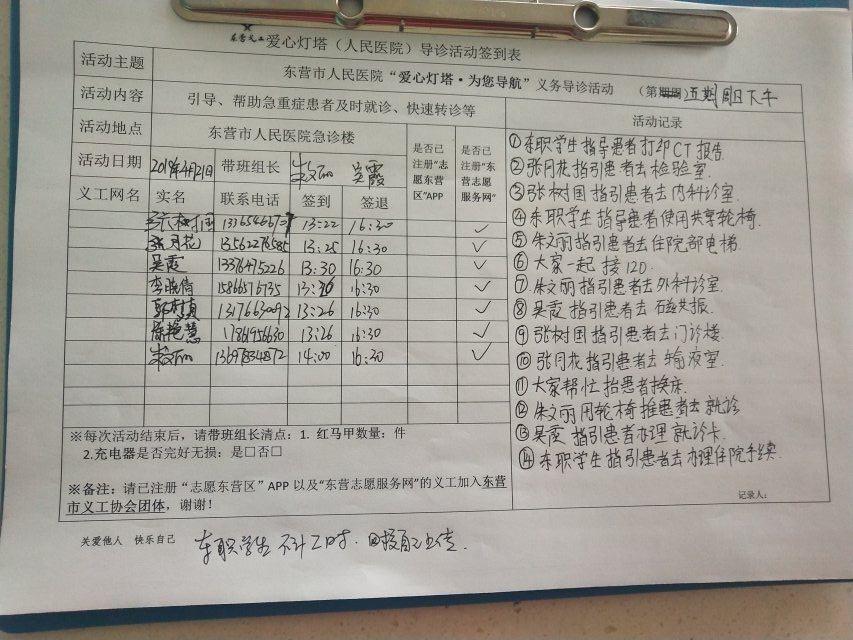 东营义工 爱心灯塔（人民医院）导诊活动签到表
活动主题 东营市人民医院“爱心灯塔·为您导航”义务导诊活动 （第 五期 周日下午
活动内容 引导、帮助急重症患者及时就诊、快速转诊等 活动记录
活动地点 东营市人民医院急诊楼
活动日期 2019年4月21日 带班组长 朱文丽 吴霞 是否已注册“志愿东营区”APP 是否已注册“东营志愿服务网”
义工网名 实名 联系电话 签到 签退
张树国 13:22 16:30 ✓
张月花 13562276585 13:25 16:30 ✓
吴霞 13376475226 13:30 16:30 ✓
15866576735 16:30 ✓
13176630092 13:26 16:30 ✓
徐艳慧 17861956630 13:26 16:30 ✓
朱文丽 13697834872 14:00 16:30 ✓
①东职学生指导患者打印CT报告
②张月花指引患者去检验室.
③张树国指引患者去内科诊室.
④东职学生指导患者使用共享轮椅.
⑤朱文丽指引患者去住院部电梯
⑥大家一起接120.
⑦朱文丽指引患者去外科诊室.
⑧吴霞指引患者去磁共振.
⑨张树国指引患者去门诊楼.
⑩张月花指引患者去输液室.
⑪大家帮忙抬患者换床.
⑫朱文丽用轮椅推患者去就诊
⑬吴霞指引患者办理就诊卡.
⑭东职学生指引患者去办理住院手续.
记录人：
※每次活动结束后，请带班组长清点：1. 红马甲数量： 件
2.充电器是否完好无损：是□否□
※备注：请已注册“志愿东营区”APP 以及“东营志愿服务网”的义工加入东营
市义工协会团体，谢谢！
关爱他人 快乐自己
东职学生不计工时. 回校自己上传.